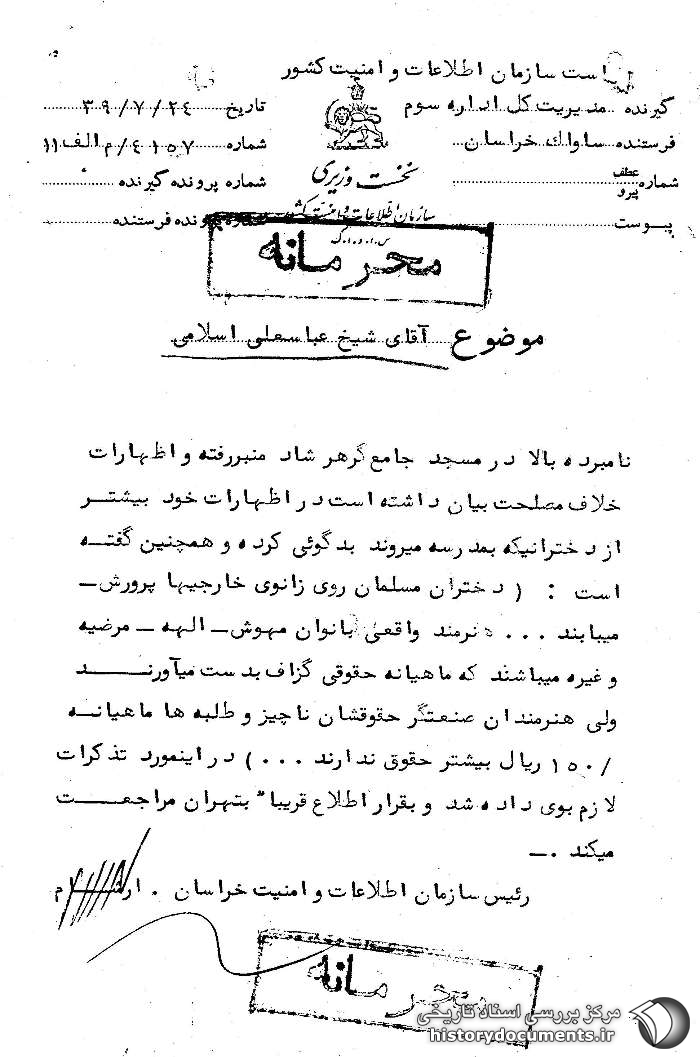 است سازمان اطلاعات و امنیت کشور
گیرنده مدیریت کل اداره سوم
تاریخ ۳۹/۷/۲٤
فرستنده ساواك خراسان
شماره ٤۱۵۷/م الف ۱۱
شماره عطف پیرو
شماره پرونده گیرنده
پیوست
شماره پرونده فرستنده
نخست وزیری
سازمان اطلاعات و امنیت کشور
س.ا.و.ا.ک
محرمانه
موضوع آقای شیخ عباسعلی اسلامی
نامبرده بالا در مسجد جامع گرهر شاد منبررفته و اظهارات
خلاف مصلحت بیان داشته است در اظهارات خود بیشتر
از دخترانیکه بمدرسه میروند بدگوئی کرده و همچنین گفته
است : ( دختران مسلمان روی زانوی خارجیها پرورش ـ
میبابند ... هنرمند واقعی بانوان مهوش ـ الهه ـ مرضیه
و غیره میباشند که ماهیانه حقوقی گزاف بدست میآورند
ولی هنرمندان صنعتگر حقوقشان ناچیز و طلبه ها ماهیانه
/۱۵۰ ریال بیشتر حقوق ندارند ... ) در اینمورد تذکرات
لازم بوی داده شد و بقرار اطلاع قریبا" بتهران مراجعت
میکند .ـ
رئیس سازمان اطلاعات و امنیت خراسان . ارشام
محرمانه
مرکز بررسی اسناد تاریخی
historydocuments.ir